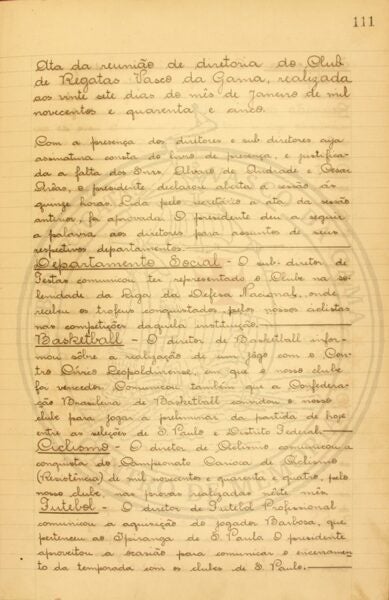 111
Ata da reunião de diretoria do Club
de Regatas Vasco da Gama, realizada
aos vinte sete dias do mês de Janeiro de mil
novecentos e quarenta e cinco.
Com a presença dos diretores e sub diretores cuja
assinatura consta do livro de presença, e justifica-
da a falta dos Snrs. Alvaro de Andrade e Cesar
Arêas, o presidente declarou aberta a sessão ás
quinze horas. Lida pelo secretário a ata da sessão
anterior, foi aprovada. O presidente deu a seguir
a palavra aos diretores para assuntos de seus
respectivos departamentos.
Departamento Social - O sub-diretor de
Festas comunicou ter representado o Clube na so-
lenidade da Liga da Defesa Nacional, onde
recebeu os trofeus conquistados pelos nossos ciclistas
nas competições daquela instituição.
Basketball - O diretor de Basketball infor-
mou sôbre a realização de um jôgo com o Cen-
tro Cívico Leopoldinense, em que o nosso clube
foi vencedor. Comunicou também que a Confedera-
ção Brasileira de Basketball convidou o nosso
clube para jogar a preliminar da partida de hoje
entre as seleções de S. Paulo e Distrito Federal.
Ciclismo - O diretor de Ciclismo comunicou a
conquista do Campeonato Carioca de Ciclismo
(Resistência) de mil novecentos e quarenta e quatro, pelo
nosso clube nas provas realizadas nêste mês.
Futebol - O diretor de Futebol Profissional
comunicou a aquisição do jogador Barbosa, que
pertenceu ao Ypiranga de S. Paulo. O presidente
aproveitou a ocasião para comunicar o encerramen-
to da temporada com os clubes de S. Paulo.